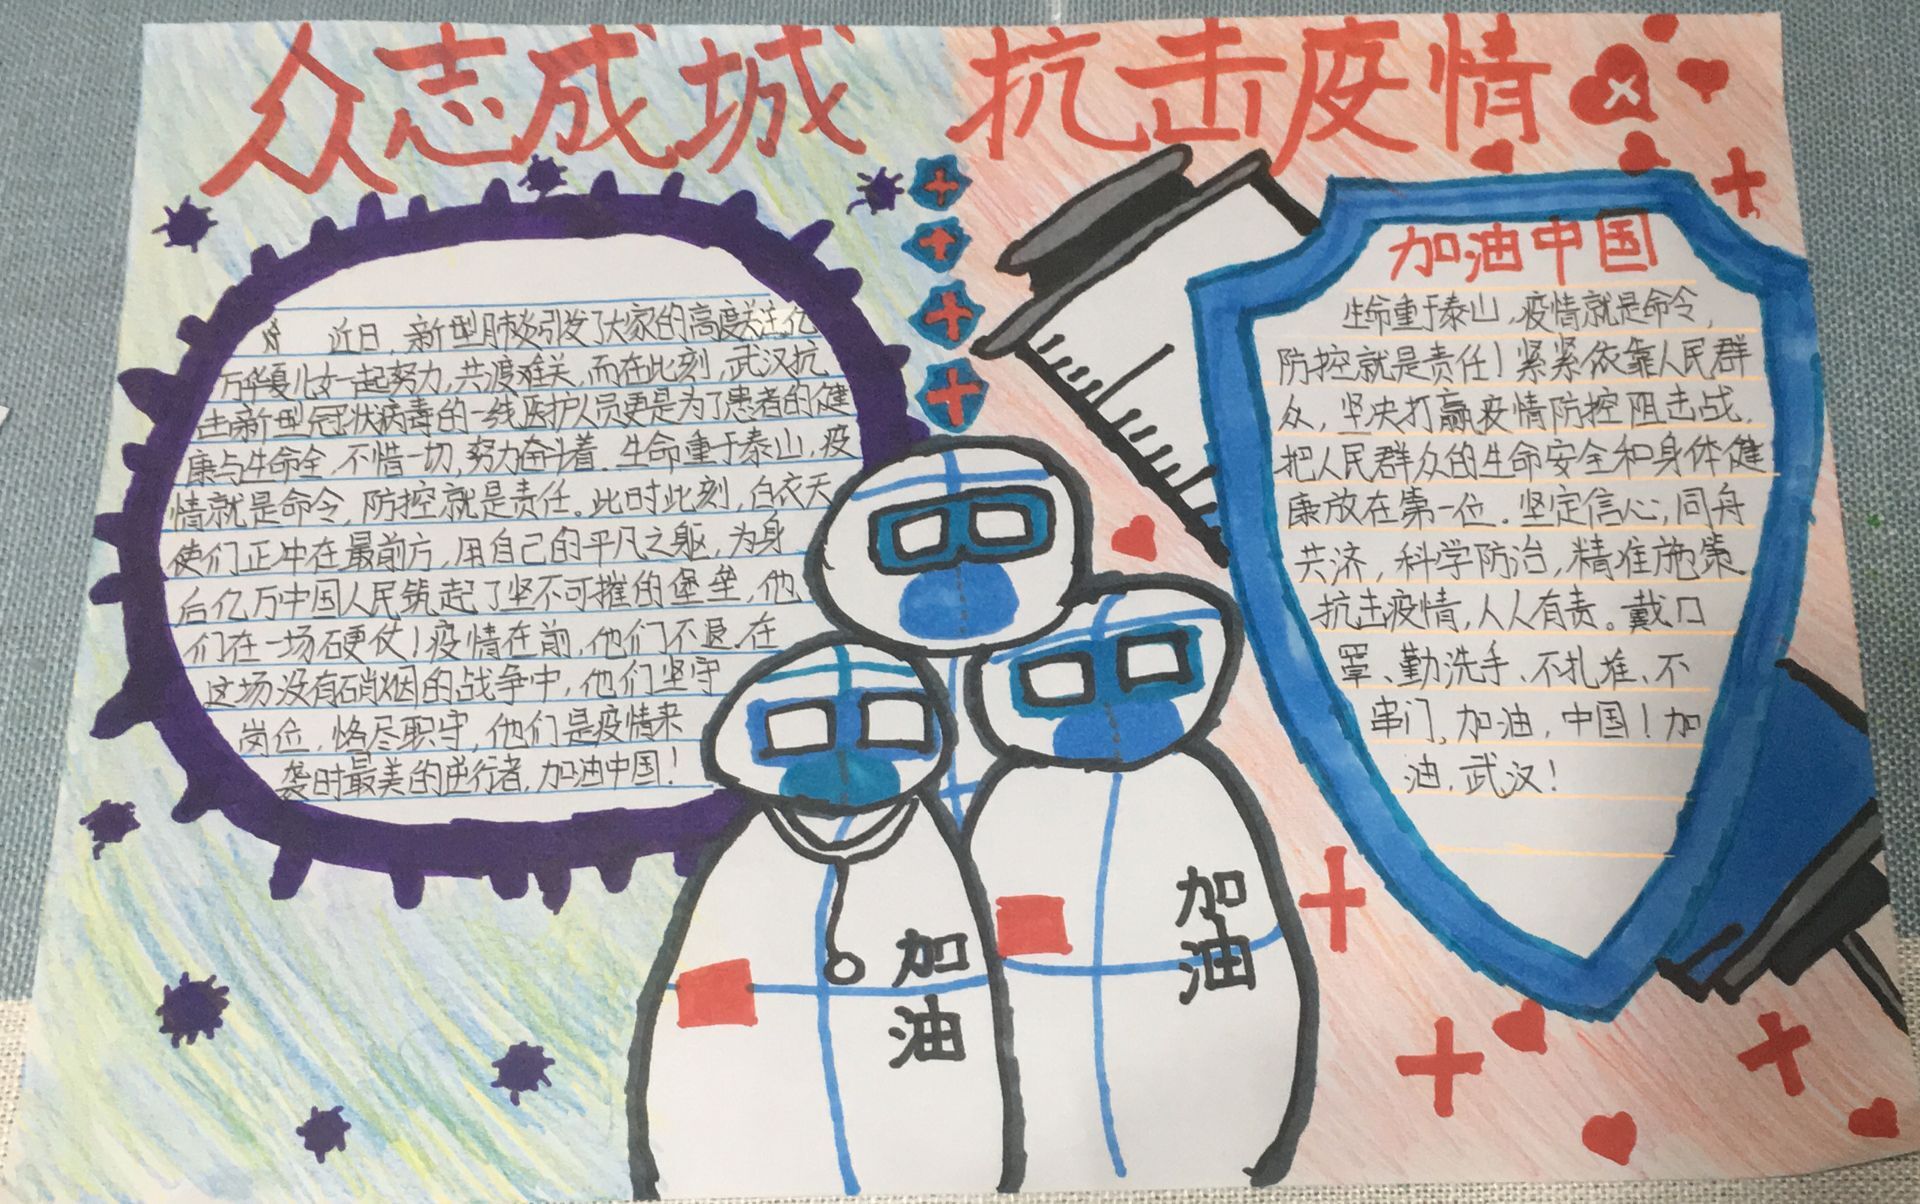 众志成城 抗击疫情
近日，新型肺炎引发了大家的高度关注，亿
万华夏儿女一起努力，共渡难关，而在此刻，武汉抗
击新型冠状病毒的一线医护人员更是为了患者的健
康与生命全，不惜一切，努力奋斗着．生命重于泰山，疫
情就是命令，防控就是责任。此时此刻，白衣天
使们正冲在最前方，用自己的平凡之躯，为身
后亿万中国人民筑起了坚不可摧的堡垒，他
们在一场硬仗！疫情在前，他们不退．在
这场没有硝烟的战争中，他们坚守
岗位，恪尽职守，他们是疫情来
袭时最美的逆行者，加油中国！
加油中国
生命重于泰山，疫情就是命令，
防控就是责任！紧紧依靠人民群
众，坚决打赢疫情防控阻击战．
把人民群众的生命安全和身体健
康放在第一位．坚定信心，同舟
共济，科学防治，精准施策
抗击疫情，人人有责。戴口
罩、勤洗手、不扎堆、不
串门。加油，中国！加
油，武汉！
加油
加油